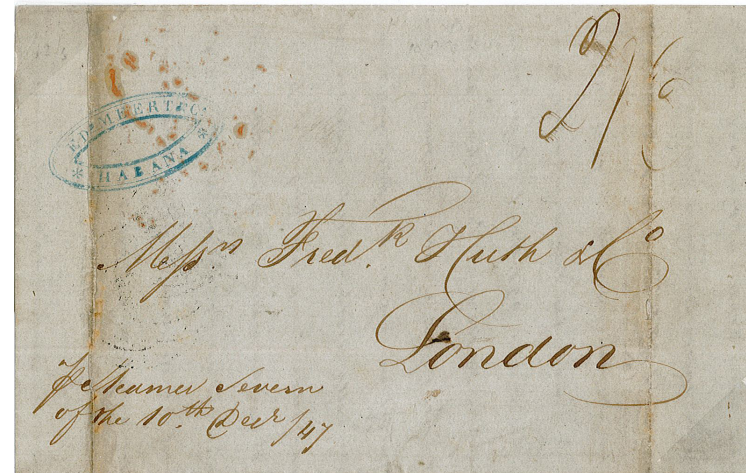 2/
* EDᵈ MEERT & Cº *
HABANA
Messʳˢ Fredᵏ Huth & Cº
London
p Steamer Severn
of the 10th Decr/47